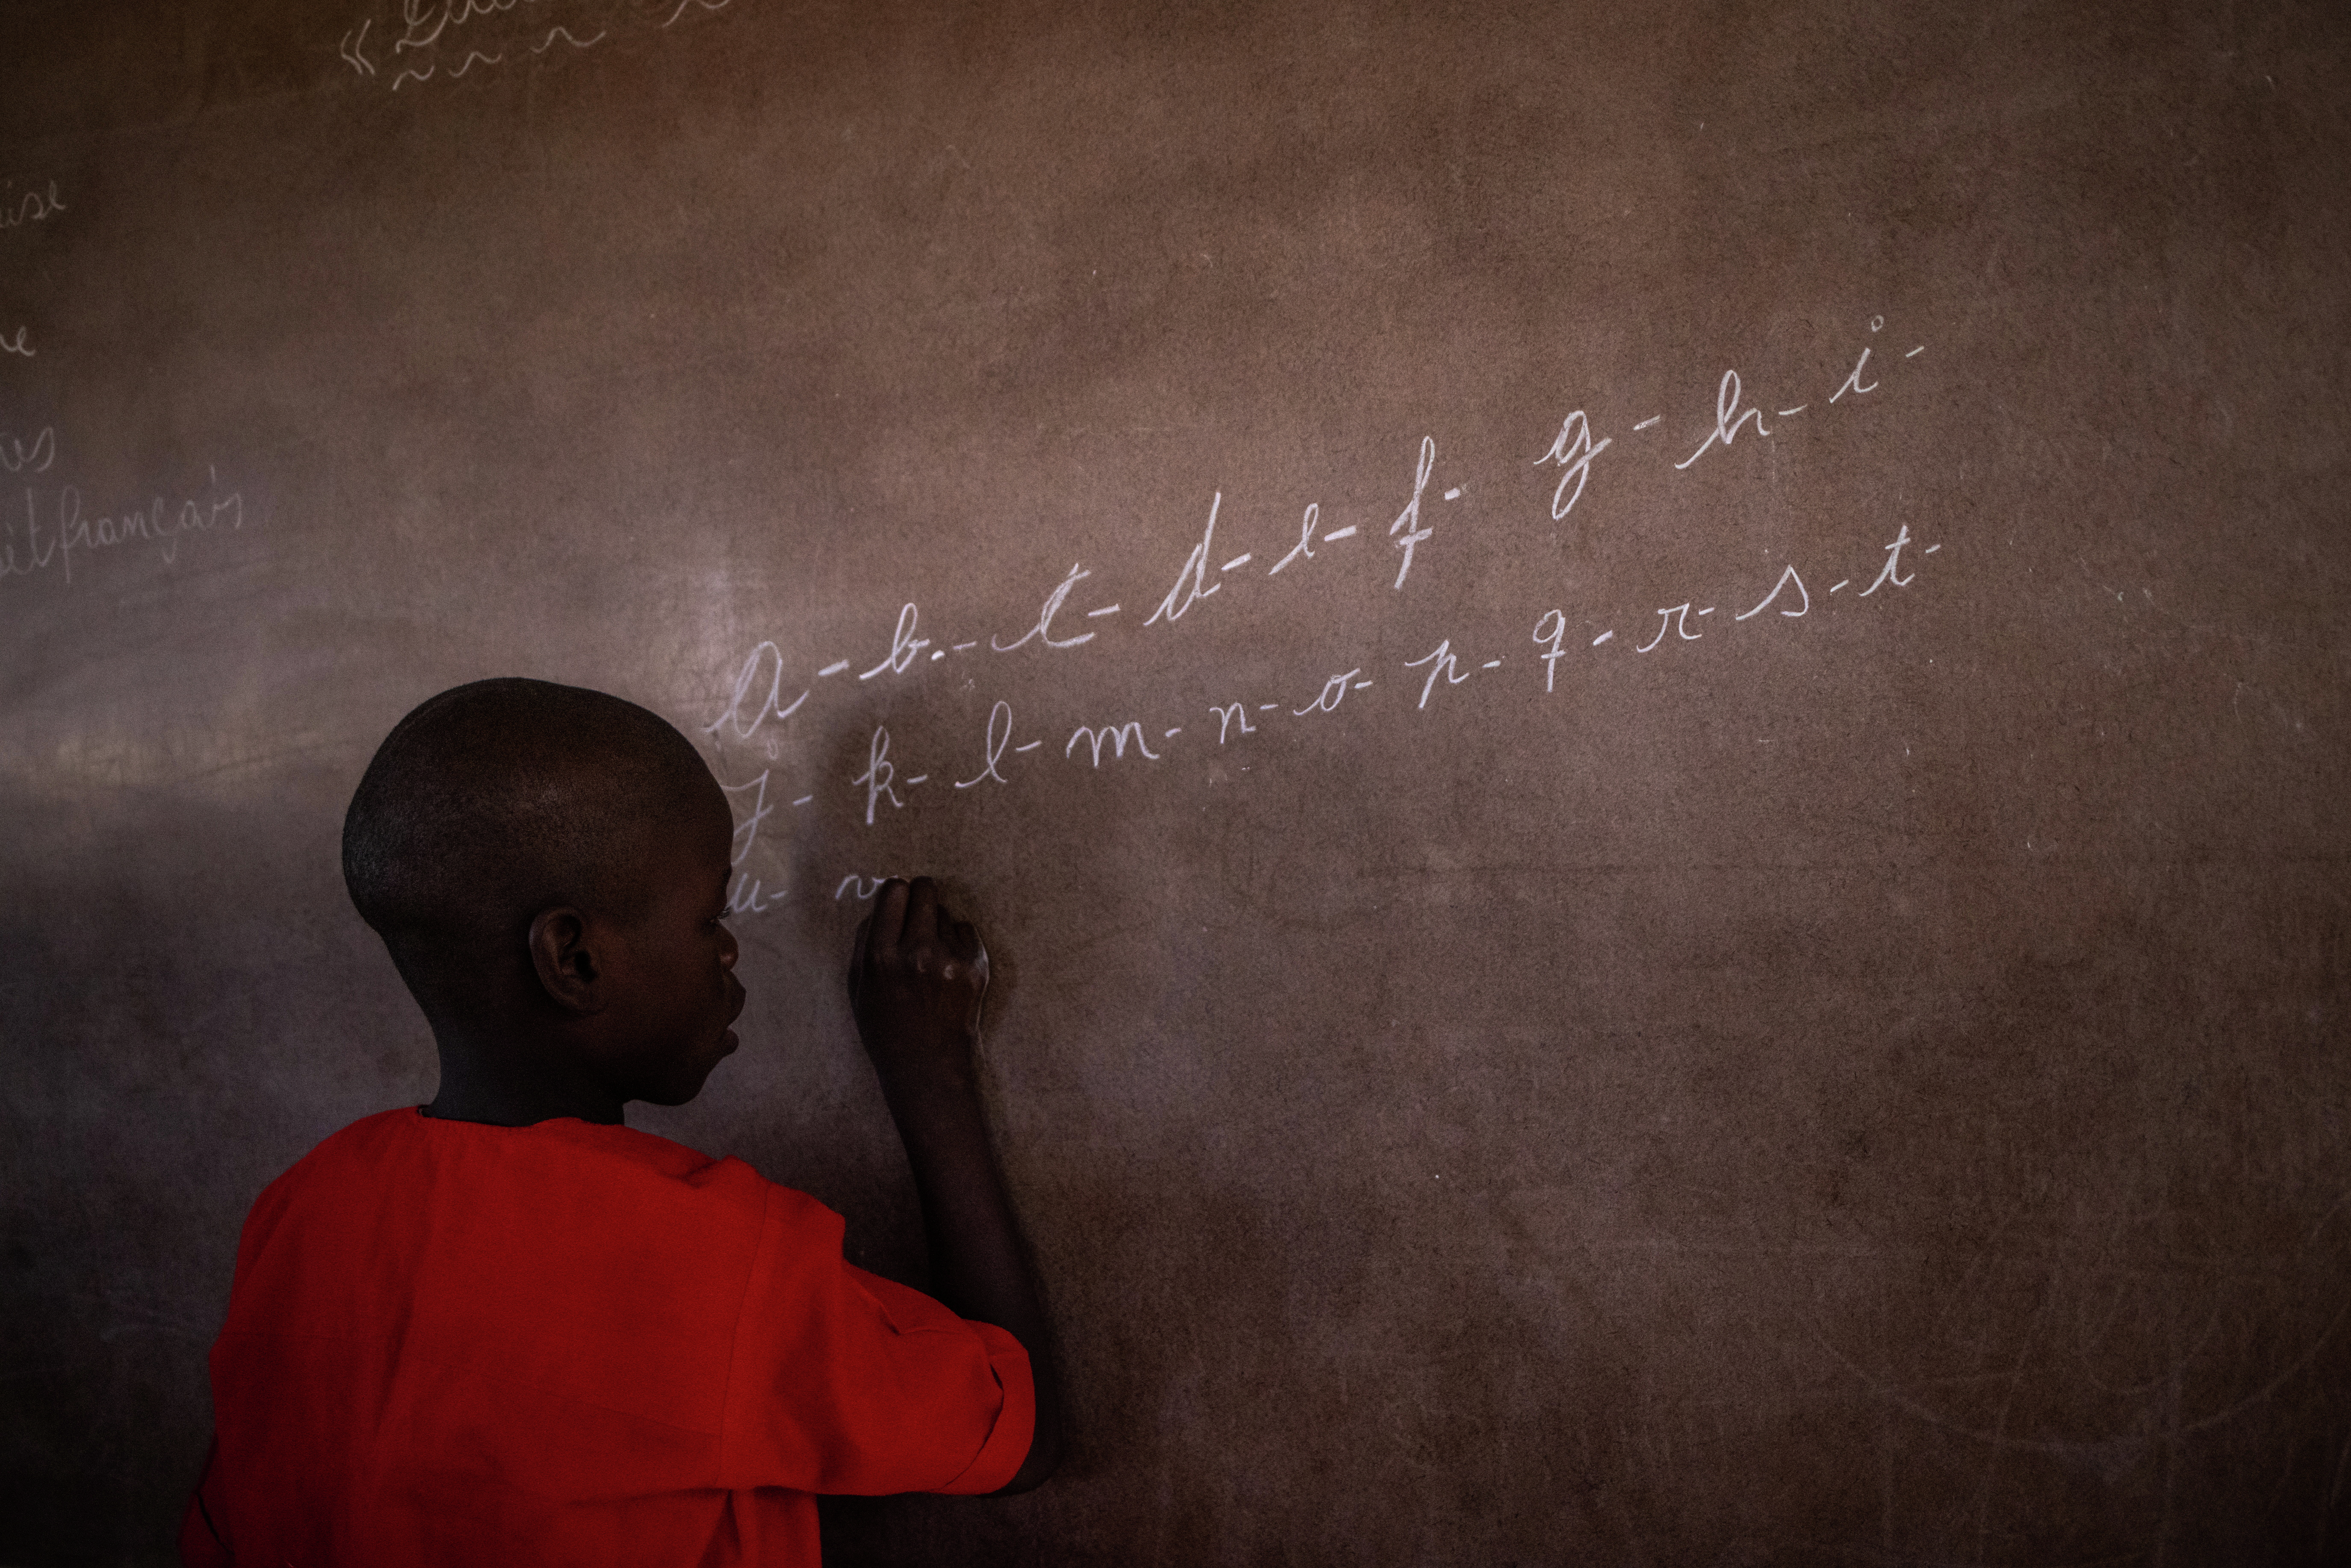 français
a - b - c - d - e - f - g - h - i -
j - k - l - m - n - o - p - q - r - s - t -
u - v